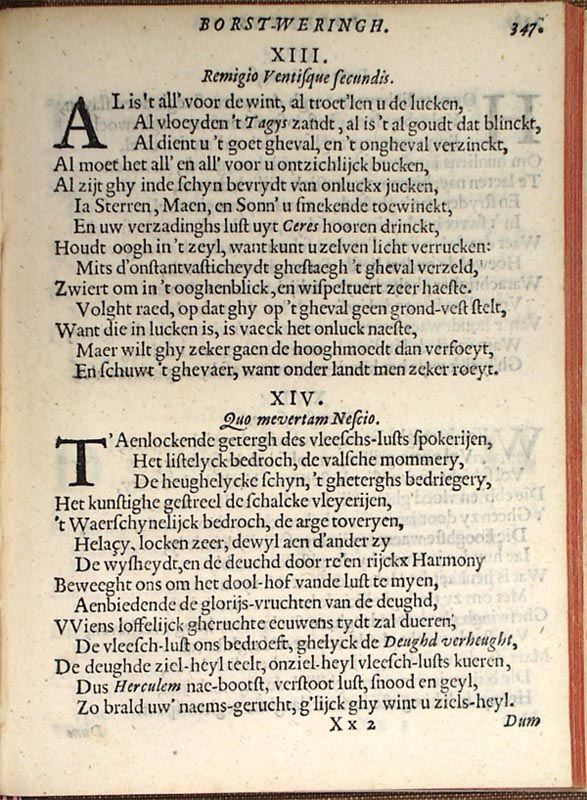 BORST-WERINGH. 347.
XIII.
Remigio Ventisque secundis.
AL is't all' voor de wint, al troet'len u de lucken,
Al vloeyden 't Tagys zandt, al is 't al goudt dat blinckt,
Al dient u 't goet gheval, en 't ongheval verzinckt,
Al moet het all' en all' voor u ontzichlijck bucken,
Al zijt ghy inde schyn bevrydt van onluckx jucken,
Ia Sterren, Maen, en Sonn' u smekende toewinckt,
En uw verzadinghs lust uyt Ceres hooren drinckt,
Houdt oogh in 't zeyl, want kunt u zelven licht verrucken:
Mits d'onstantvasticheydt ghestaegh 't gheval verzeld,
Zwiert om in 't ooghenblick, en wispeltuert zeer haeste.
Volght raed, op dat ghy op 't gheval geen grond-vest stelt,
Want die in lucken is, is vaeck het onluck naeste,
Maer wilt ghy zeker gaen de hooghmoedt dan verfoeyt,
En schuwt 't ghevaer, want onder landt men zeker roeyt.
XIV.
Quo me vertam Nescio.
T'Aenlockende getergh des vleeschs-lusts spokerijen,
Het listelyck bedroch, de valsche mommery,
De heughelycke schyn, 't gheterghs bedriegery,
Het kunstighe gestreel de schalcke vleyerijen,
't Waerschynelijck bedroch, de arge toveryen,
Helacy, locken zeer, dewyl aen d'ander zy
De wysheydt, en de deuchd door re'en rijckx Harmony
Beweeght ons om het dool-hof vande lust te myen,
Aenbiedende de glorijs-vruchten van de deughd,
VViens loffelijck gheruchte eeuwens tydt zal dueren;
De vleesch-lust ons bedroeft, ghelyck de Deughd verheught,
De deughde ziel-heyl teelt, onziel-heyl vleesch-lusts kueren,
Dus Herculem nae-bootst, verstoot lust, snood en geyl,
Zo brald uw' naems-gerucht, g'lijck ghy wint u ziels-heyl.
Xx 2 Dum